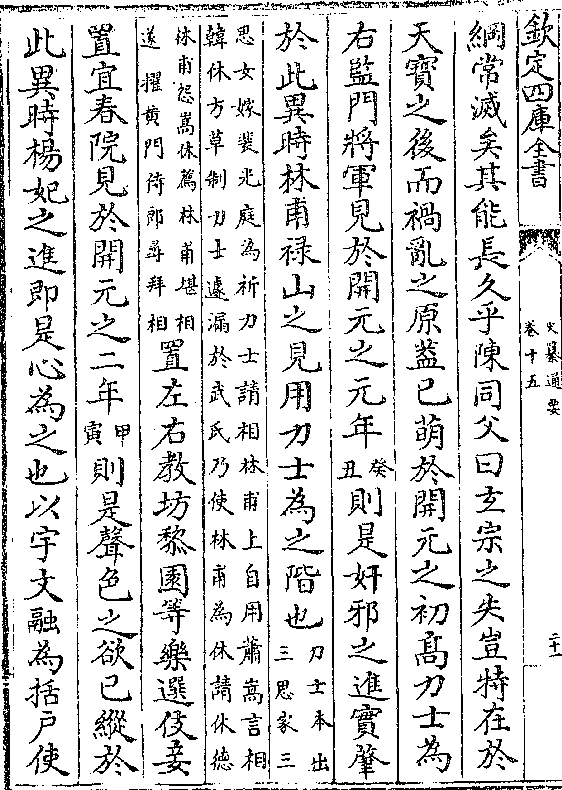 欽定四庫全書
史纂通要
卷十五
二十一
綱常滅矣其能長久乎陳同父曰玄宗之失豈特在於
天寶之後而禍亂之原葢已萌於開元之初髙力士為
右監門將軍見於開元之元年癸丑則是奸邪之進實肇
於此異時林甫禄山之見用力士為之階也力士本出三思家三
思女嫁裴光庭為祈力士請相林甫上自用蕭嵩言相
韓休方草制力士遽漏於武氏乃使林甫為休請休德
林甫怨嵩休薦林甫堪相遂擢黄門侍郎尋拜相置左右教坊黎園等樂選伎妾
置宜春院見於開元之二年甲寅則是聲色之欲已縱於
此異時楊妃之進即是心為之也以宇文融為括戶使